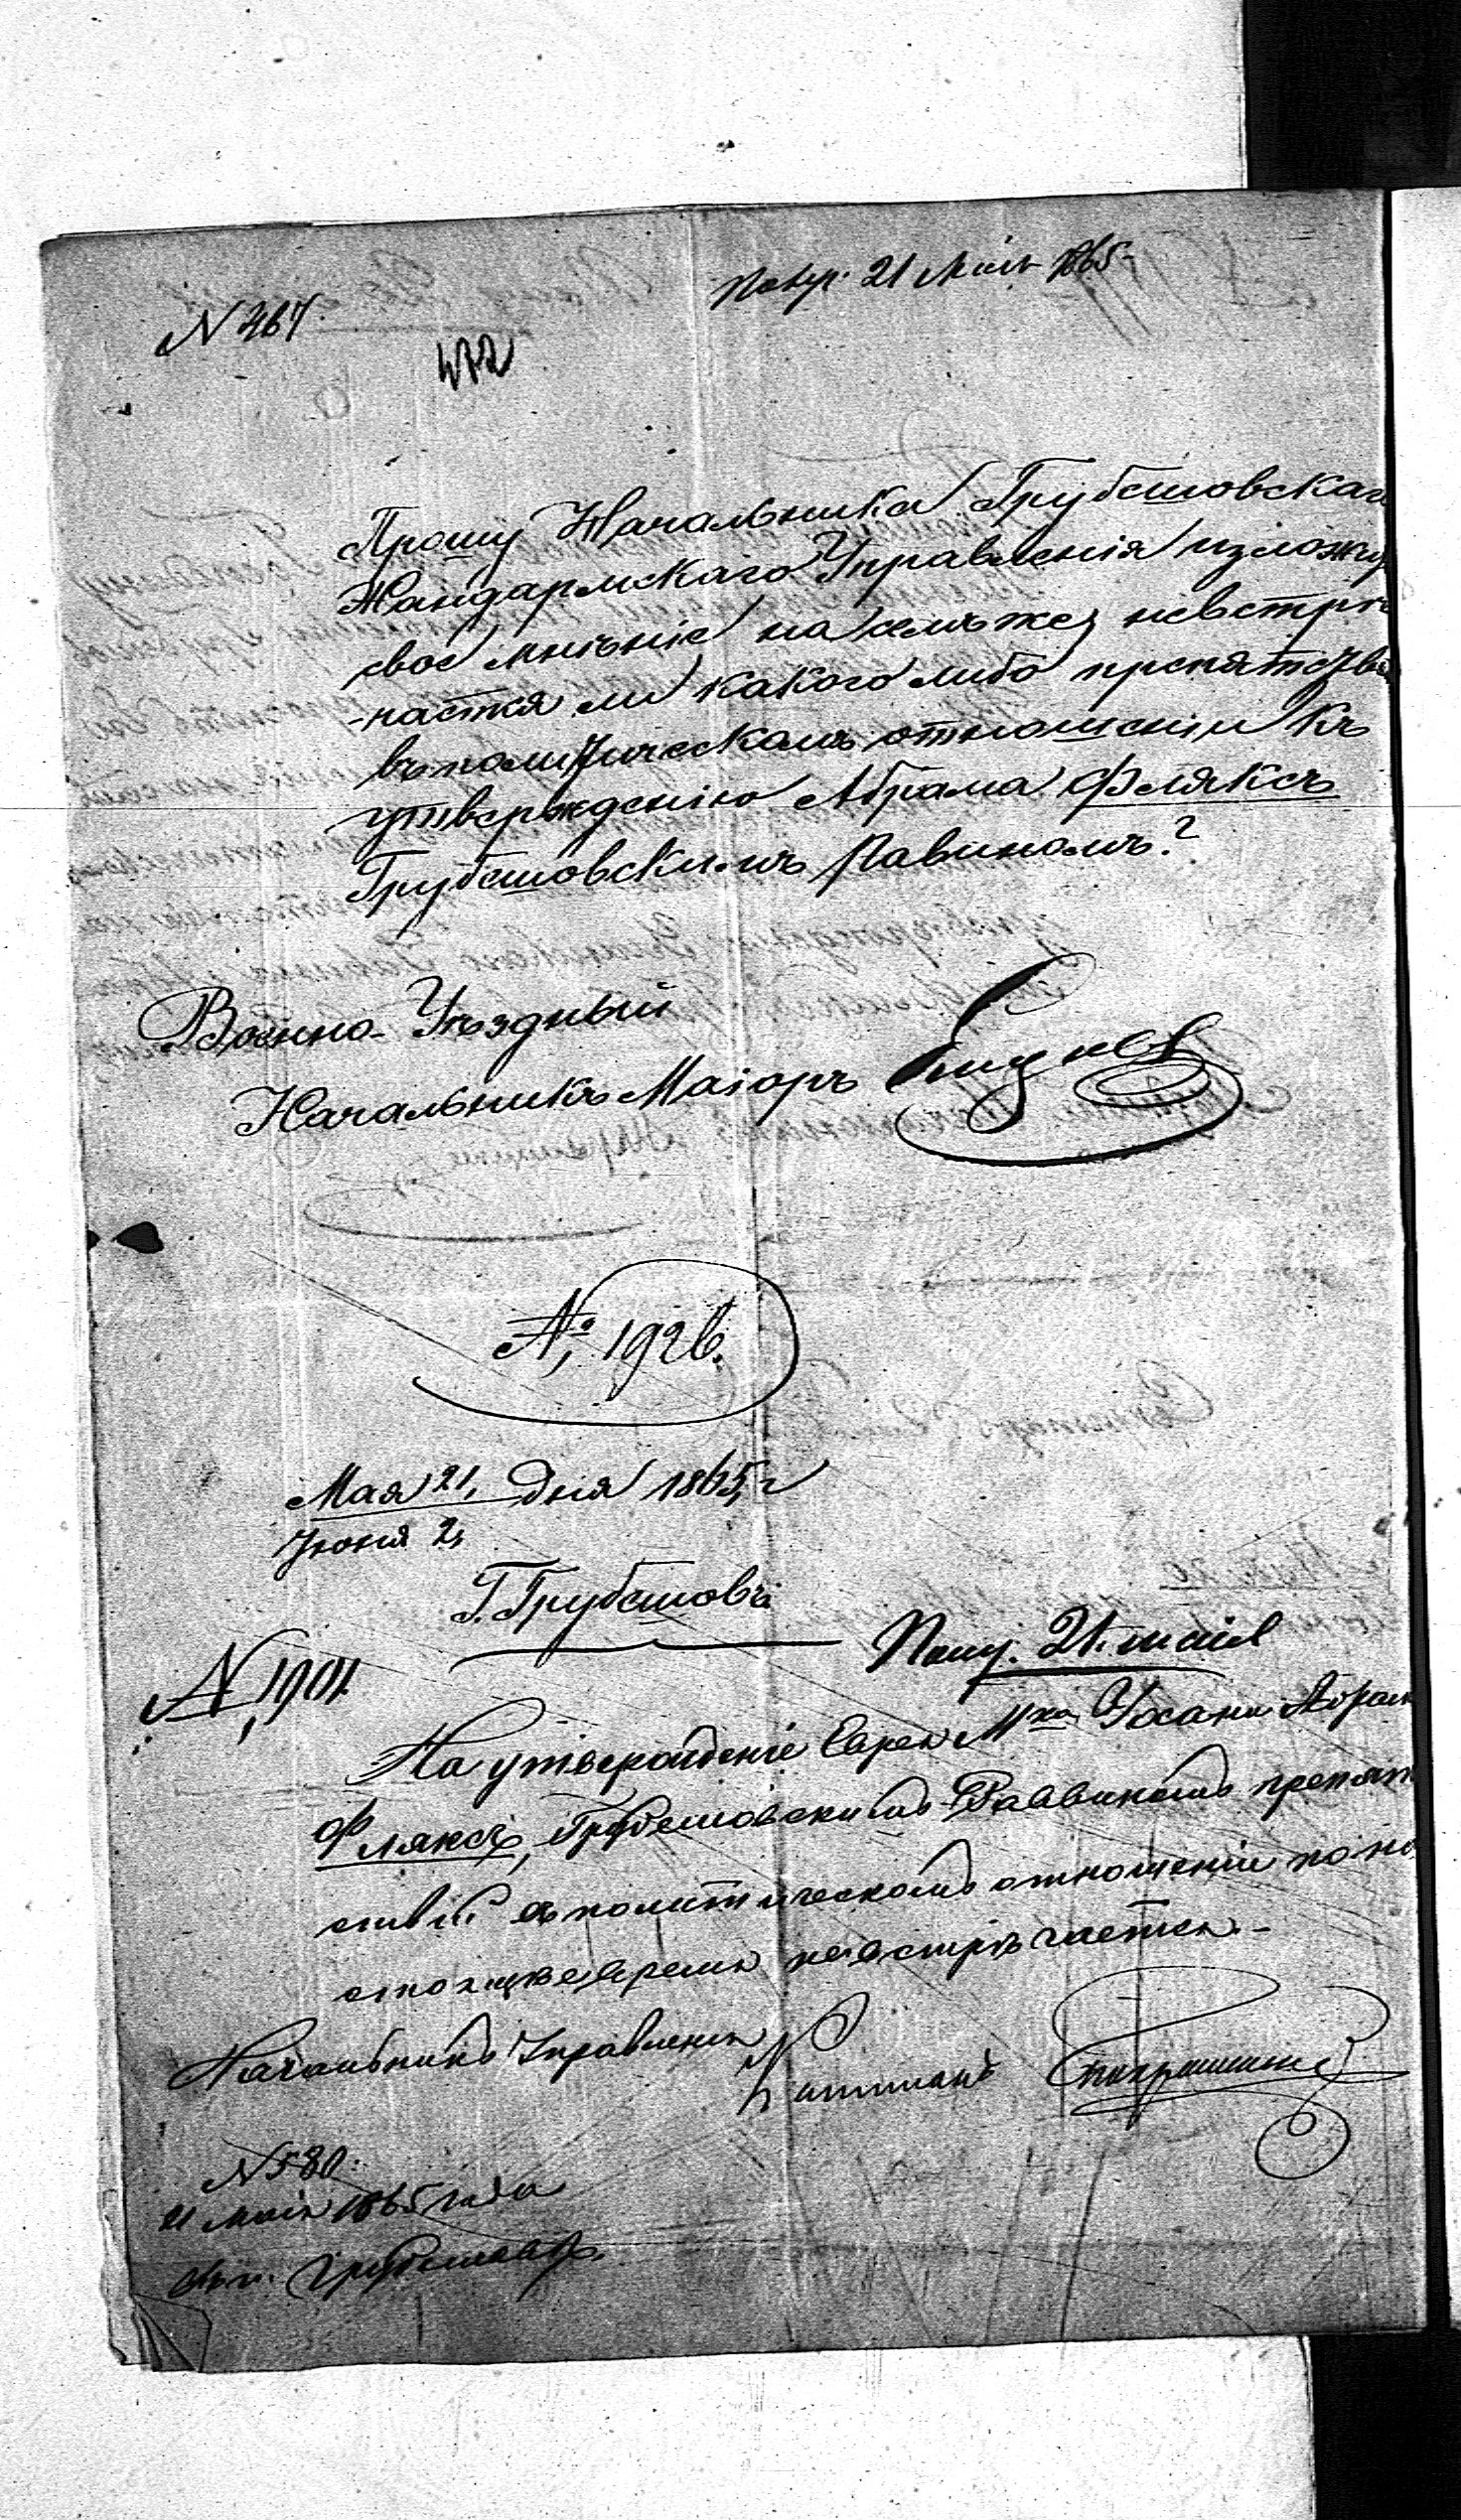 21 Мая 1865
N 467.
472
Прошу Начальника Грубешовскаг
Жандармскаго Управленія изложи
свое мнѣніе на семъ же, невстрѣ
-чается ли какого либо препятстві
въ политическомъ отношеніи къ
утвержденію Абрама Фляксъ
Грубешовскимъ Равиномъ?
Военно-Уѣздный
Начальникъ Маіоръ
№ 1926.
Мая 21, дня 1865 г
Іюня 2,
Г. Грубешовъ
N 1901
Полу. 21. маія
На утвержденіе Еврея Абрам
Фляксъ, Грубешовскимъ Раввиномъ препят
ствій въ политическомъ отношеніи по на
стоящее время не встрѣчается.-
Начальникъ Управленія
Капитанъ
N 580.
21 Мая 1865 года
Грубешовъ.